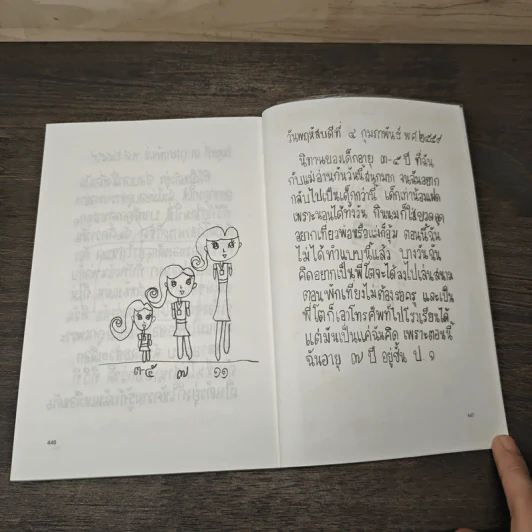 ๓-๕ ๗ ๑๑
446
วันพฤหัสบดีที่ ๔ กุมภาพันธ์ พ.ศ.๒๕๕๙
นิทานของเด็กอายุ ๓-๕ ปี ที่ฉัน
กับแม่อ่านกันวันนี้สนุกมาก จนฉันอยาก
กลับไปเป็นเด็กกว่านี้ เด็กเท่าน้องแฝด
เพราะนอนได้ทั้งวัน กินนมก็ใส่ขวดดูด
อยากเที่ยวพ่อหรือแม่ก็อุ้ม ตอนนี้ฉัน
ไม่ได้ทำแบบนี้แล้ว บางวันฉัน
คิดอยากเป็นพี่โตจะได้ลงไปเล่นสนาม
ตอนพักเที่ยงไม่ต้องรอครู และเป็น
พี่โตก็เอาโทรศัพท์ไปโรงเรียนได้
แต่มันเป็นแค่ฉันคิด เพราะตอนนี้
ฉันอายุ ๗ ปี อยู่ชั้น ป.๑
447